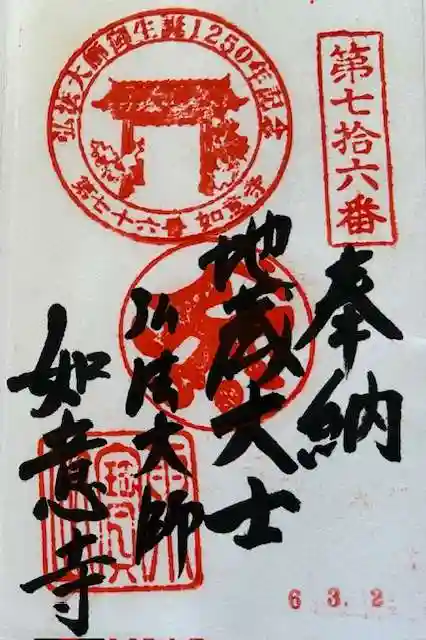 弘法大師御生誕1250年記念
第七十六番 如意寺
第七拾六番
奉納
地蔵大士
弘法大師
如意寺
6.3.2